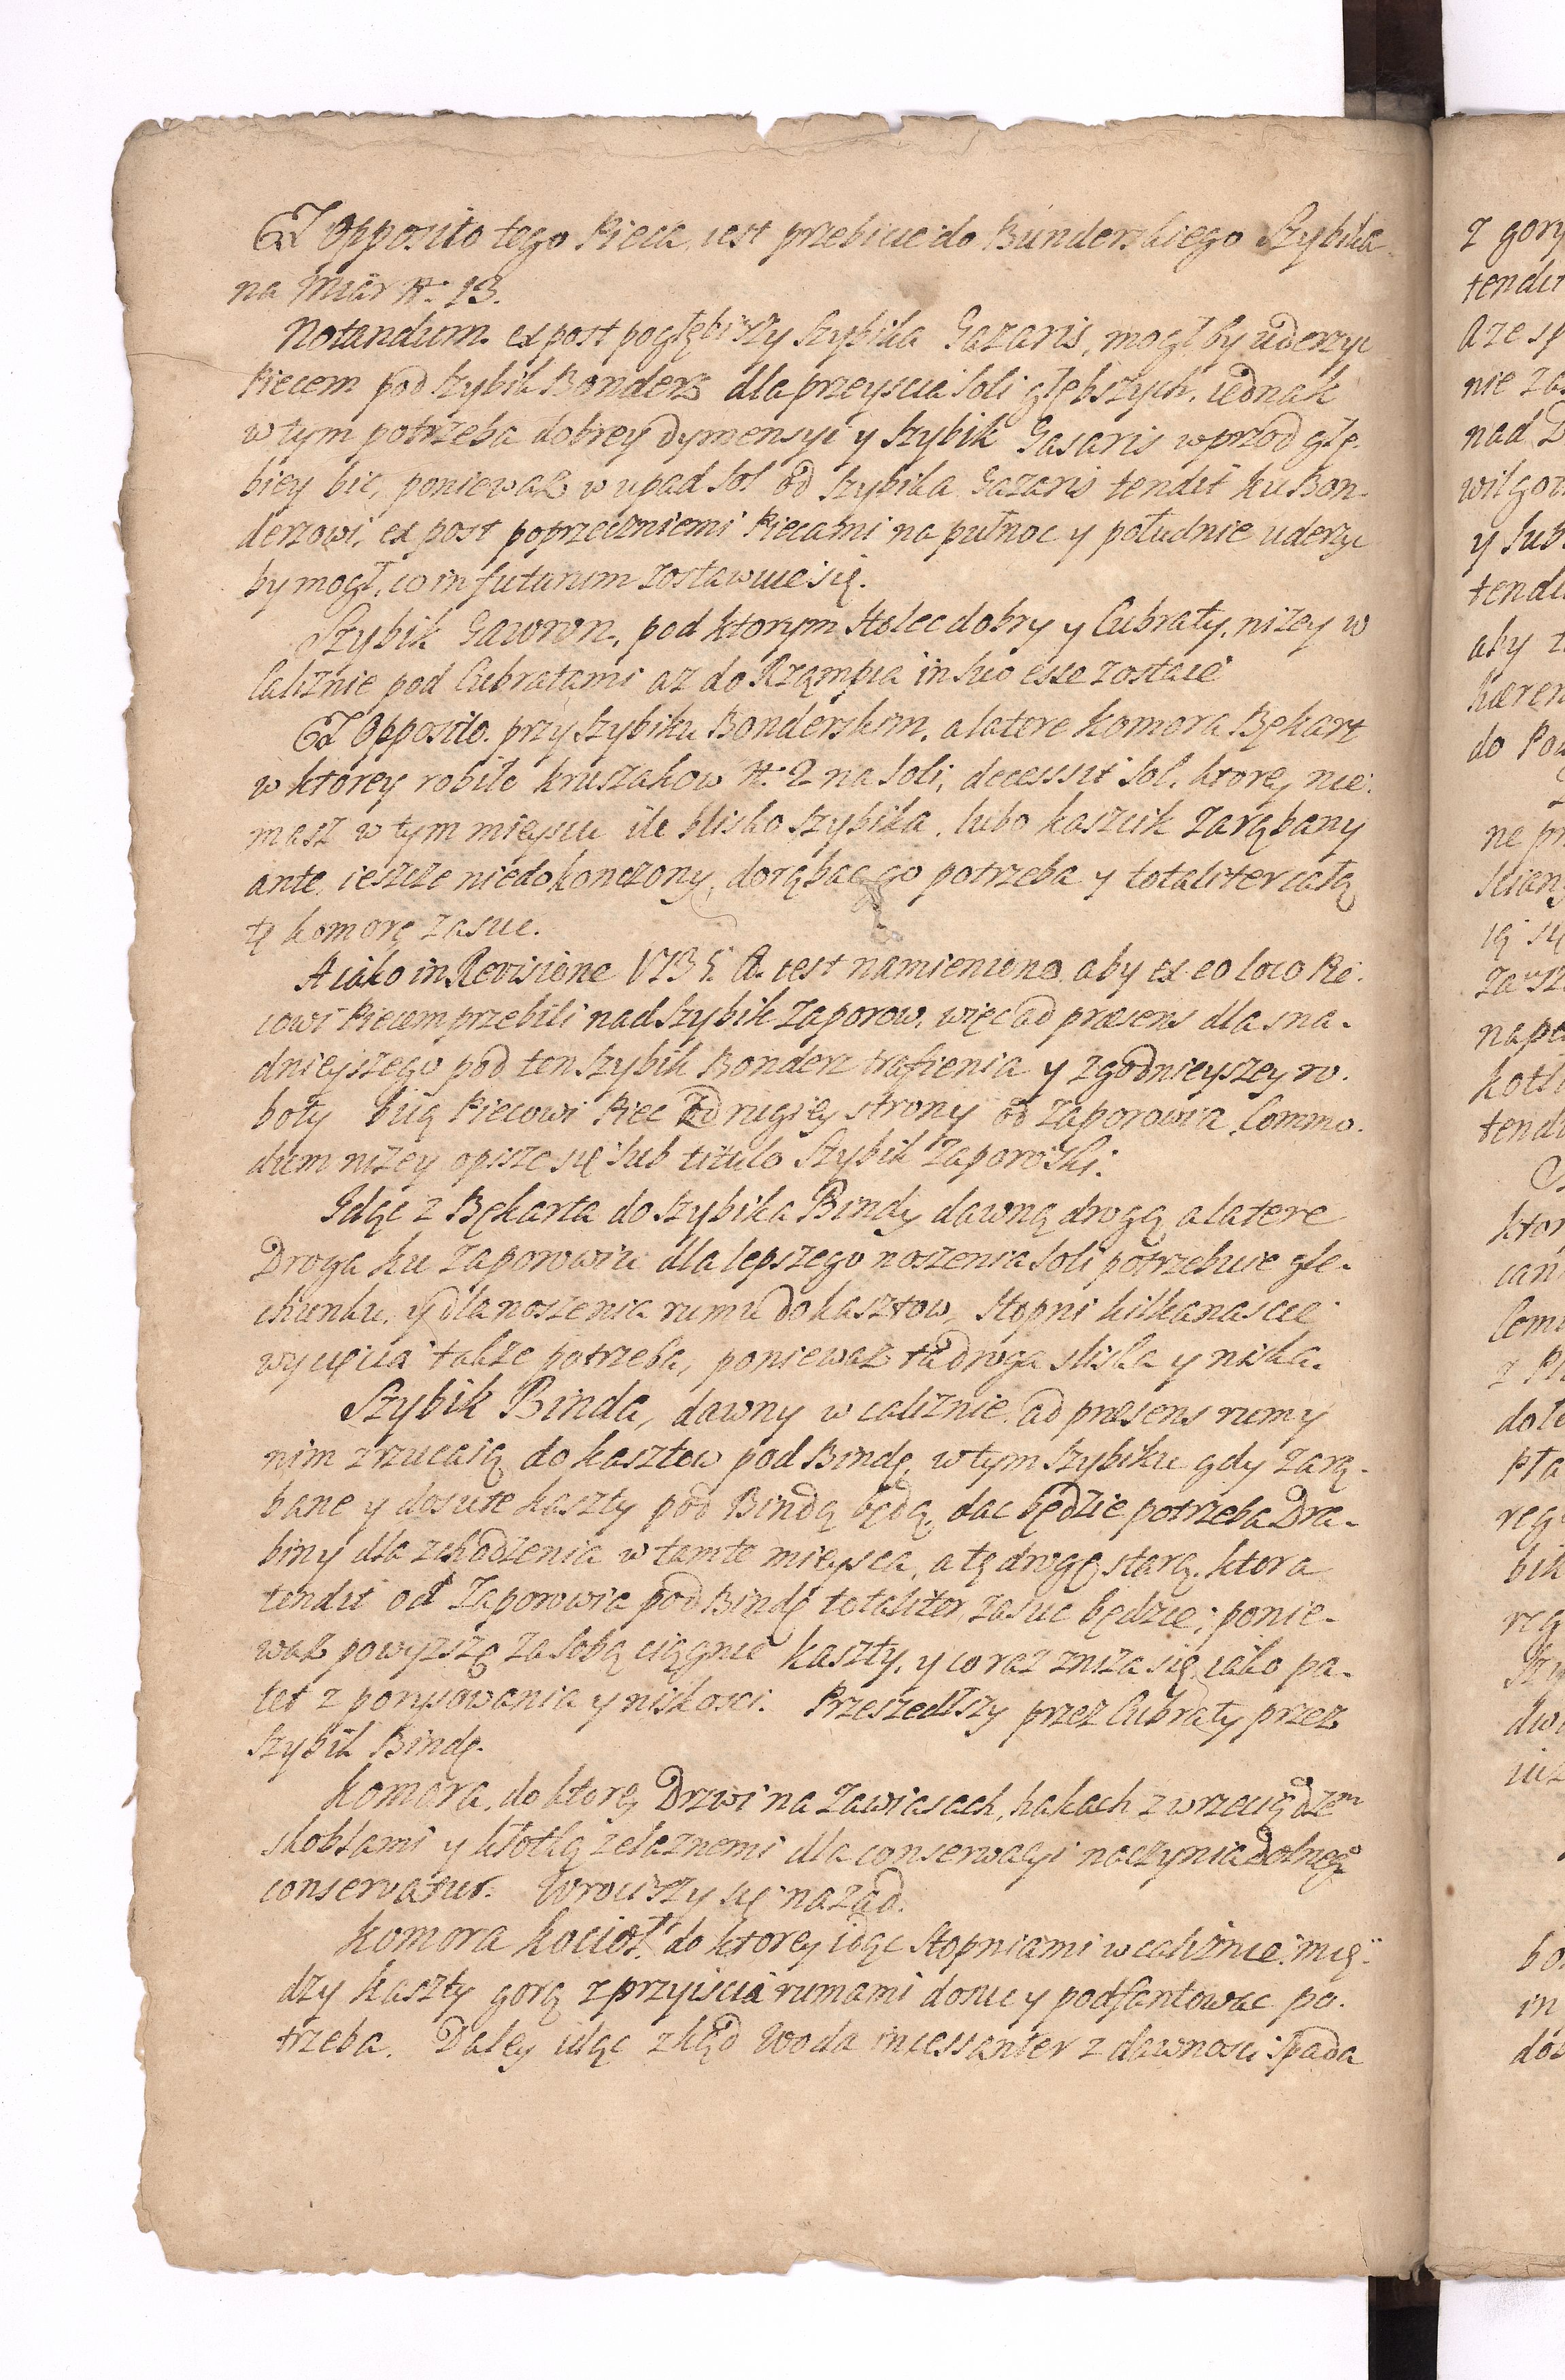 Ex Opposito tego Pieca iest przebicie do Bunderskiego Szybika
na Miar N: 13.
Notandum. ex post pogłębiwszy Szybika Gazaris, mogłby uderzyc
Piecem pod Szybik Bonderz dla przeyscia Soli głębszych, iednak
w tym potrzeba dobrey dymensyi y Szybik Gasaris wprzod głę-
biey bic, poniewasz w upad Sol od Szybika Gazaris tendit ku Bon-
derzowi, ex post poprzeczniemi Piecami na pułnoc y południe uderzyc
by mogł, co in futurum zostawuie się.
Szybik Gawron, pod ktorym Stolec dobry y Cubraty, niżey w
Caliznie pod Cubratami az do Rząmpia in suo esse zostaie
Ex Opposito. przy Szybiku Bonderskim, a latere Komora Bękart
w ktorey robiło kruszakow N: 2 na Soli, decessit Sol, ktorey nie-
masz w tym mieyscu ile blisko Szybika, lubo kaszcik zarąbany
ante, ieszcze niedokonczony, dorąbac go potrzeba y totaliter całą
tę komorę zasuc.
A iako in Revisione 1735. A. iest namieniono aby ex eo loco Pie-
cowi Piecem przebili nad Szybik Zaporow, więc ad præsens dla sna-
dnieyszego pod ten Szybik Bonderz trafienia y zgodnieyszey ro-
boty biią Piecowi Piec z drugiey strony od Zaporowia, Commo-
dum niżey opisze się sub titulo Szybik Zaporowski.
Idąc z Bękarta do Szybika Bindy dawną drogą a latere
Droga ku Zaporowiu dla lepszego noszenia Soli potrzebuie gle-
chunku, y dla noszenia rumu do kasztow, Stopni kilkanascie
wycięcia także potrzeba, poniewasz ta droga sliska y niska.
Szybik Binda, dawny w caliznie, ad præsens rumy
nim zrzucaią do kasztow pod Bindę, w tym Szybiku gdy zarą-
bane y dosute kaszty pod Bindą będą, dac będzie potrzeba Dra-
biny dla zchodzenia w tamte mieysca, a tę drogę starą, ktora
tendit od Zaporowia pod Bindę totaliter zasuc będzie, ponie-
wasz powyższe za sobą ciągnie kaszty, y coraz zniża się, iako pa-
tet z porysowania y niskosci. Przeszedłszy przez Cubraty przez
Szybik Bindę.
Komora, do ktorey Drzwi na Zawiasach, hakach z wrzeciądzem
skoblami y kłotką żelaznemi dla conserwacyi naczynia Dolnego
conservatur. Wrociwszy się nazad.
Komora Kocioł, do ktorey idąc Stopniami w caliznie, mię-
dzy kaszty gorą z przyiscia rumami dosuc y podfantowac po-
trzeba. Daley idąc zkąd Woda incessanter z dawnosci spada